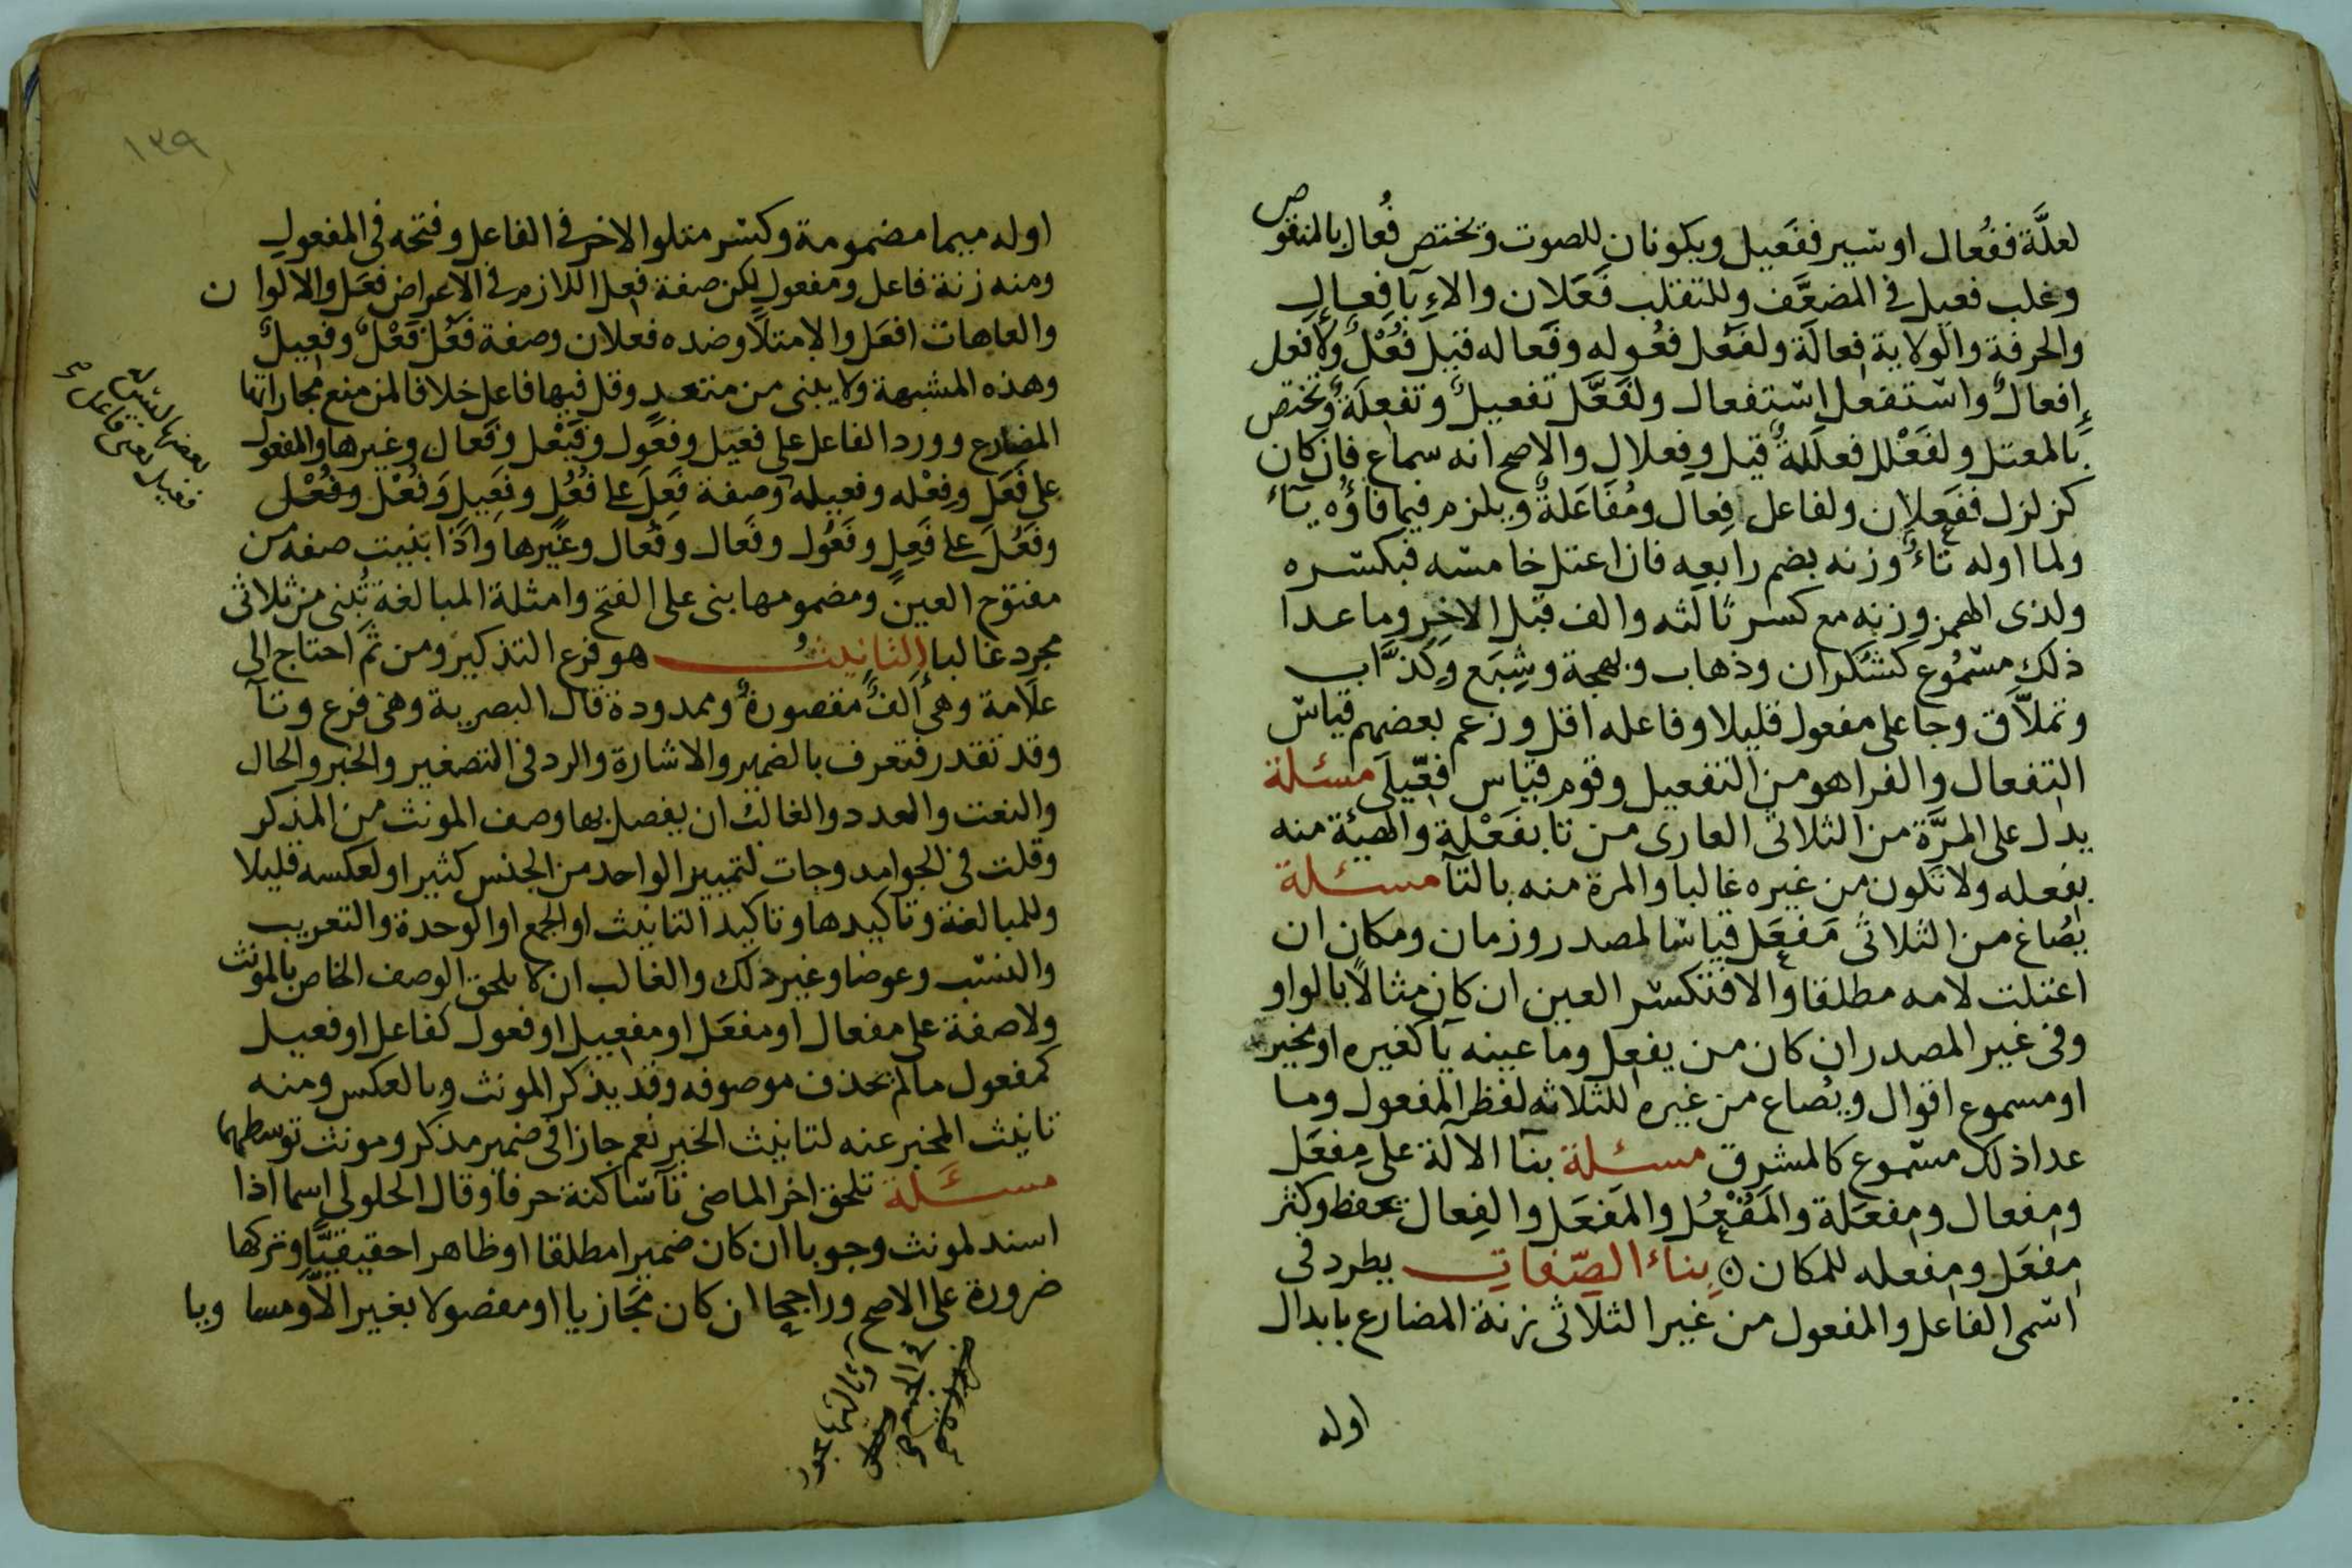 لعلَّة ففُعال او سير ففَعيل ويكونان للصوت وتختص فُعال بالمنقوص
وغلب فعيل في المضعَّف وللتقلب فَعَلان والاِءِبآ فِعال
والحرفة والولاية فِعالَة ولفَعُل فعُوله وفَعاله قيل فُعْلٌ ولافعل
إفعالٌ واستفعل اِستفعال ولفَعَّل تفعيلٌ وتفعِلَةٌ وتختص
بالمعتل ولفَعْلل فعلَلةٌ قيل وفِعلال والاصح انه سماع فان كان
كزلزل ففَعلان ولفاعل فِعال ومُفَاعَلةٌ ويلزم فيما فاؤه يآءٌ
ولما اوله تاءٌ وزنه بضم رابعه فان اعتل خامسه فبكسره
ولذى الهمز وزنه مع كسر ثالثه والف قبل الاخر وما عدا
ذلك مسمُوع كشُكران وذهاب وبهجة وشِبَع وكذَّاب
وتملَّاق وجا على مفعول قليلا وفاعله اقل وزعم بعضهم قياس
التفعال والفرا هو من التفعيل وقوم قياس فعِّيلَى مسئلة
يدل على المرَّة من الثلاثى العارى من تا بفَعْلة والهيئة منه
بفعله ولا تكون من غيره غالبا والمرة منه بالتآ مسئلة
يصُاغ من الثلاثى مَفعَل قياسا لمصدر وزمان ومكان ان
اعتلت لامه مطلقا والا فتكسر العين ان كان مثالًا بالواو
وفى غير المصدر ان كان من يفعِل وما عينه يآ كغيره او مخير
او مسموع اقوال ويصُاغ من غيره للثلاثه لفظ المفعول وما
عدا ذلك مسموع كالمشرق مسئلة بنآ الآلة على مِفعَل
ومِفعال ومِفعَلة والمُفْعُل والمَفعَل والفِعال تحفظ وكثر
مِفعَل ومِفعله للمكان بِناءُ الصِّفاتِ يطرد فى
اسمى الفاعل والمفعول من غير الثلاثى زنة المضارع بابدال
اوله
١٣٩
اوله ميما مضمومة وكسر متلوا الاخر فى الفاعل وفتحه فى المفعول
ومنه زنة فاعل ومفعول لكن صفة فعِل اللازم فى الاعراض فعَل والالوان
والعاهات افعَل والامتلا وضده فعلان وصفة فَعُل فَعْلٌ وفَعِيلٌ
وهذه المشبهة ولا يبنى من متعدٍ وقل فيها فاعل خلافا لمن منع مجاراتها
المضارع وورد الفاعل على فعَيل وفعَول وفَيْعل وفَعال وغيرها والمفعول
على فَعَل وفِعْله وفعيله وصفة فَعِلَ على فُعُل وفَعِيل وَفُعْل وفُعْل
وفَعُلَ على فَعِلٍ وفَعُول وفَعال وفُعال وغيرها واذا بَنيت صفه من
مفتوح العين ومضمومها بنى على الفتح وامثلة المبالغة تُبنى من ثلاثى
مجرد غالبا التانيثُ هو فرع التذكير ومن ثَم احتاج الى
علامة وهى اَلفٌ مقصورةٌ وممدودة قال البصرية وهى فرع وتآ
وقد تقدر فتعرف بالضمير والاشارة والرد فى التصغير والخبر والحال
والنعت والعدد والغالب ان يفصل بها وصف المونث من المذكر
وقلت فى الجوامد وجات لتمييز الواحد من الجنس كثيرا ولعكسه قليلا
وللمبالغة وتاكيدها وتاكيد التانيث او الجمع او الوحدة والتعريب
والنسب وعوضا وغير ذلك والغالب ان لا يلحق الوصف الخاص بالمونث
ولا صفة على مفعال او مفعَل او مفعيل او فعول كفاعل او فعيل
كمفعول مالم يحذف موصوفه وقد يذكر المونث وبالعكس ومنه
تانيث المخبر عنه لتانيث الخبر نعم جازا فى ضمير مذكر ومونث توسطهما
مسئلة تلحق اخر الماضى تآ ساكنة حرفا وقال الجلولى اسما اذا
اسند لمونث وجوبا ان كان ضميرا مطلقا او ظاهرا حقيقيًّا وتركها
ضرورة على الاصح وراجحا ان كان مجازيا او مفصولا بغير الاَّ ومساويا
وثالثها يجوز